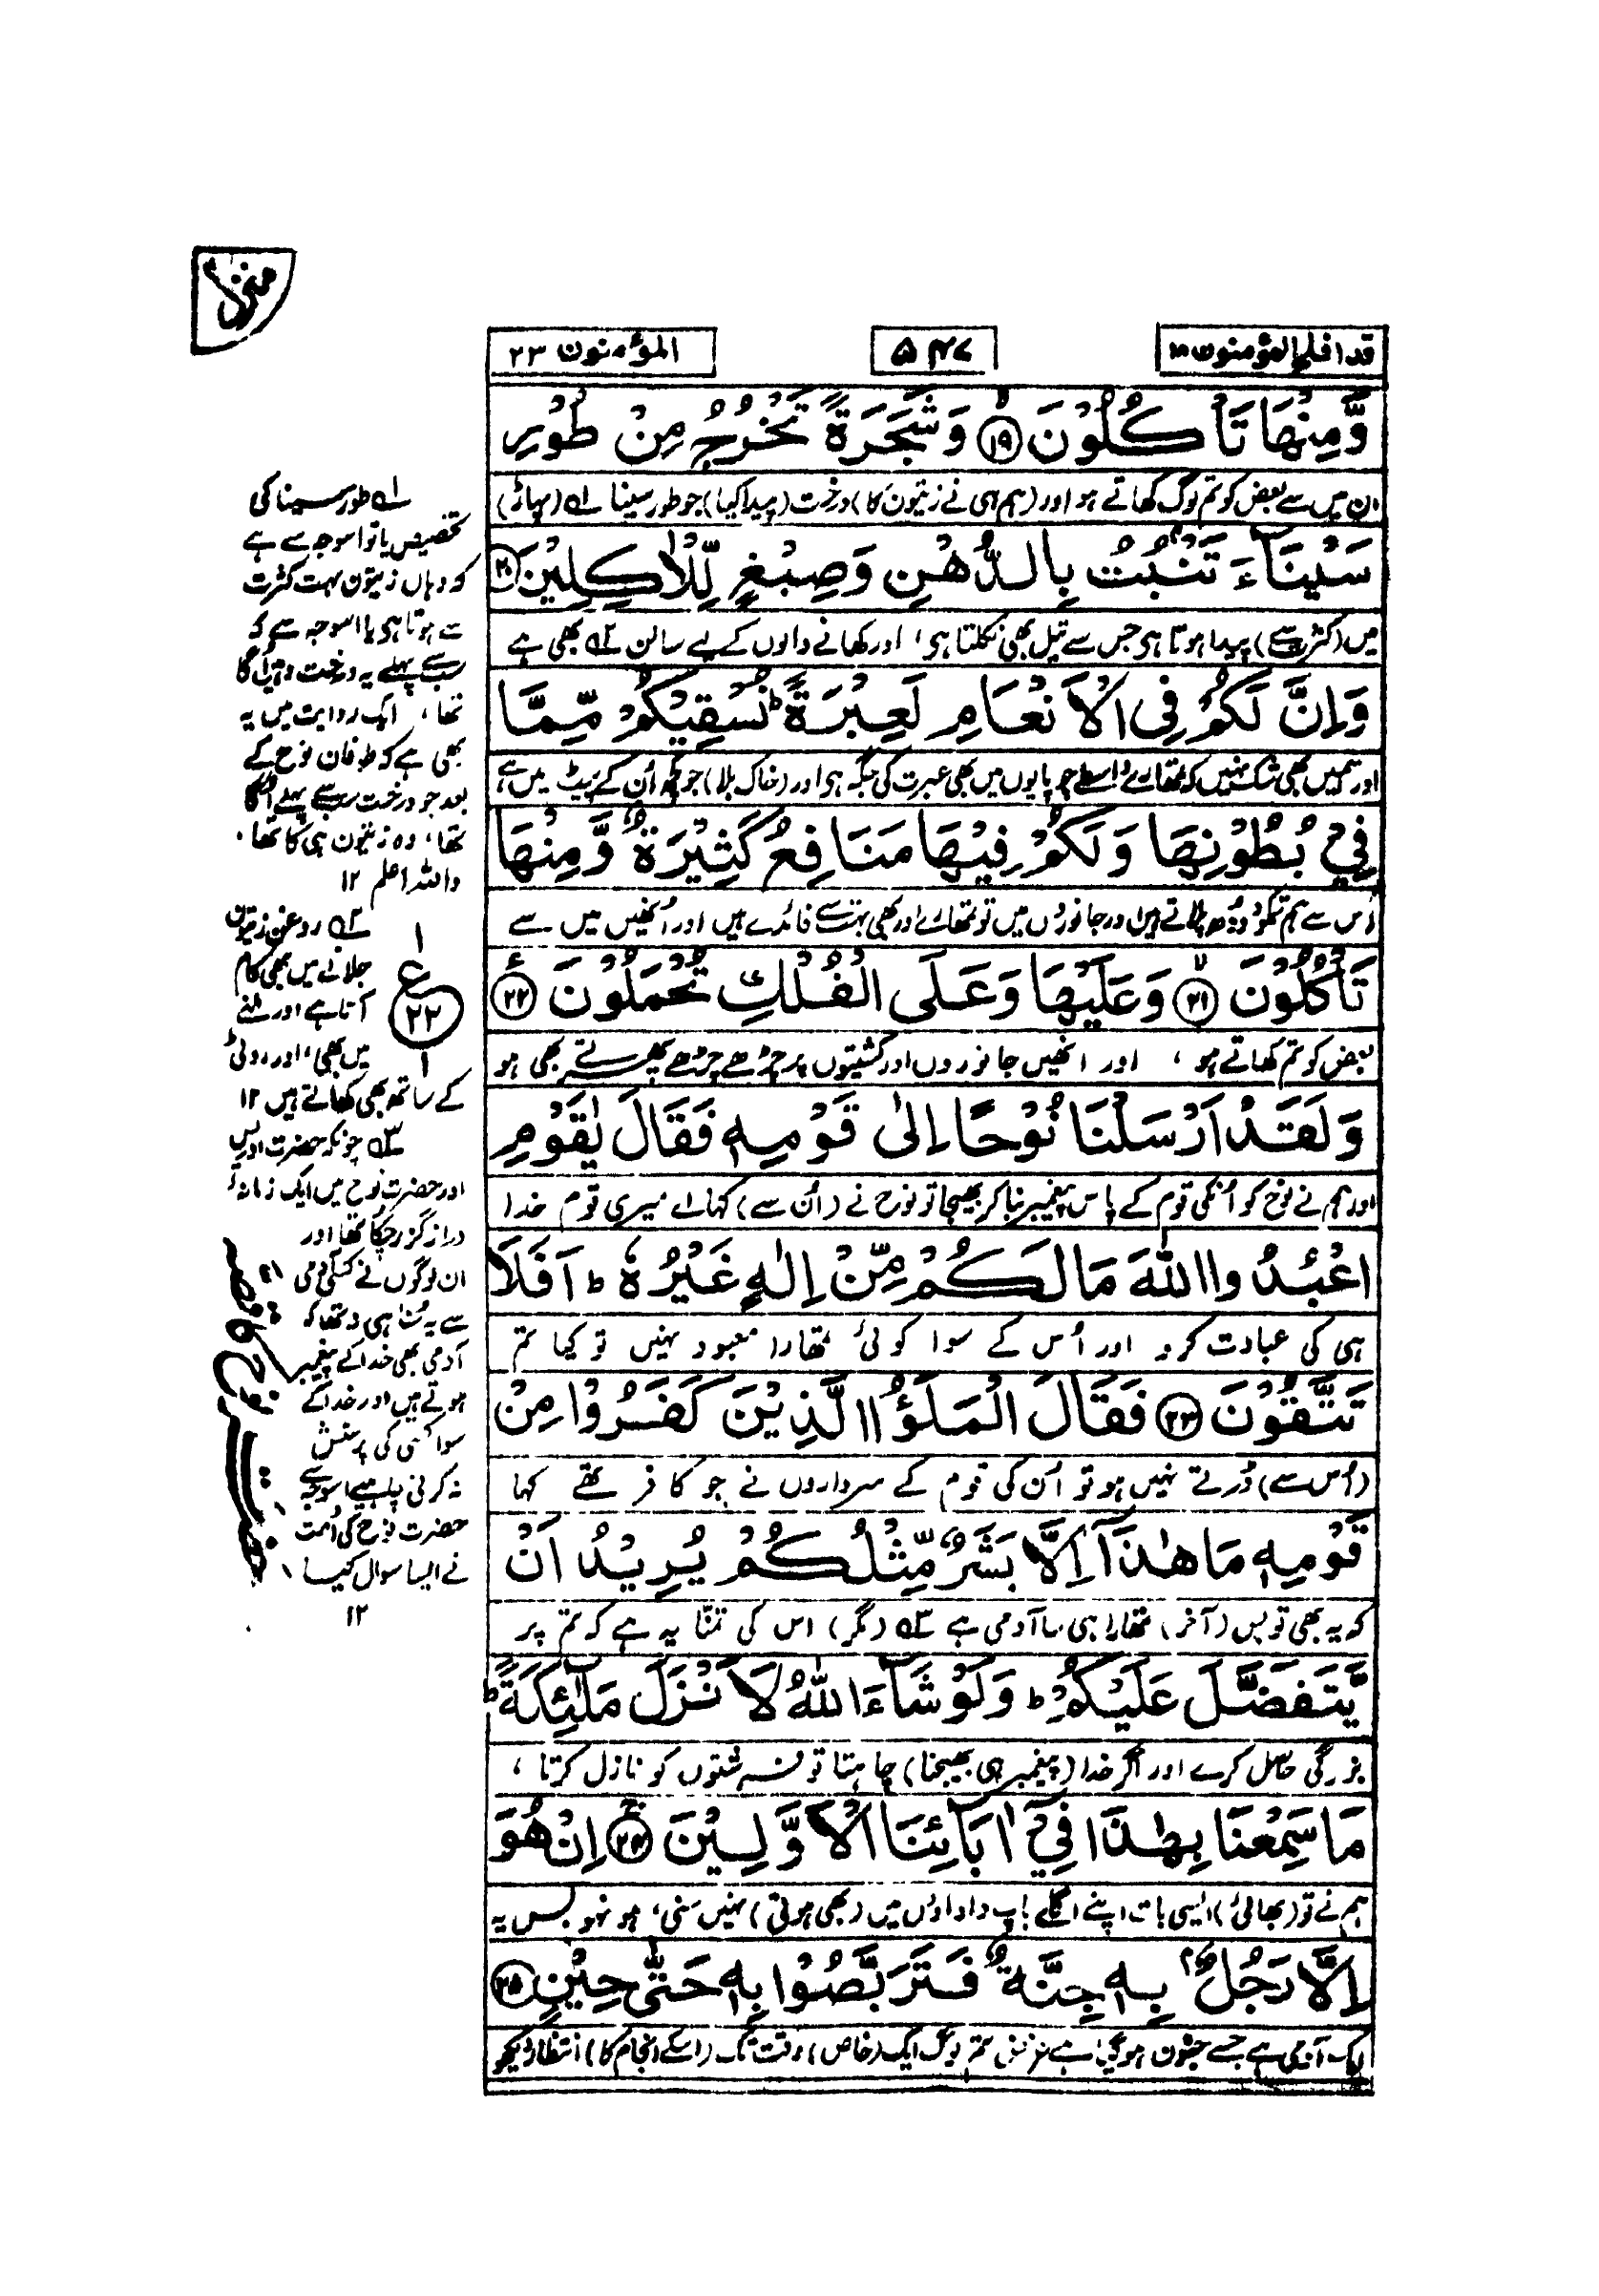 منزل
قد افلح المؤمنون ۱۸
۵۴۷
المؤمنون ۲۳
وَّمِنْهَا تَاْكُلُوْنَ ﴿۱۹﴾ وَشَجَرَةً تَخْرُجُ مِنْ طُوْرِ
ان میں سے بعض کو تم لوگ کھاتے ہو اور (ہم ہی نے زیتون کا) درخت (پیدا کیا) جو طور سینا ۱؎ (پہاڑ)
سَيْنَآءَ تَنْۢبُتُ بِالدُّهْنِ وَصِبْغٍ لِّلْاٰكِلِيْنَ ﴿۲۰﴾
میں (کثرت سے) پیدا ہوتا ہی جس سے تیل بھی نکلتا ہی، اور کھانے والوں کے لیے سالن ۲؎ بھی ہے
وَاِنَّ لَكُمْ فِى الْاَنْعَامِ لَعِبْرَةً ؕ نُسْقِيْكُمْ مِّمَّا
اور اسمیں بھی شک نہیں کہ تمھارے واسطے چوپایوں میں بھی عبرت کی جگہ ہی اور (خاک بلا) جو کچھ اُن کے پیٹ میں ہے
فِيْ بُطُوْنِهَا وَلَكُمْ فِيْهَا مَنَافِعُ كَثِيْرَةٌ وَّمِنْهَا
اُس سے ہم تمکو دودھ پلاتے ہیں اور جانوروں میں تو تمھارے اور بھی بہت سے فائدے ہیں اور اُنھیں میں سے
تَاْكُلُوْنَ ﴿۲۱﴾ وَعَلَيْهَا وَعَلَى الْفُلْكِ تُحْمَلُوْنَ ﴿۲۲﴾
بعض کو تم کھاتے ہو، اور انھیں جانوروں اور کشتیوں پر چڑھے چڑھے پھرتے بھی ہو
وَلَقَدْ اَرْسَلْنَا نُوْحًا اِلٰى قَوْمِهٖ فَقَالَ يٰقَوْمِ
اور ہم نے نوح کو اُنکی قوم کے پاس پیغمبر بنا کر بھیجا تو نوح نے (اُن سے) کہا اے میری قوم خدا
اعْبُدُوا اللّٰهَ مَا لَكُمْ مِّنْ اِلٰهٍ غَيْرُهٗ ؕ اَفَلَا
ہی کی عبادت کرو اور اُس کے سوا کوئی تمھارا معبود نہیں تو کیا تم
تَتَّقُوْنَ ﴿۲۳﴾ فَقَالَ الْمَلَؤُا الَّذِيْنَ كَفَرُوْا مِنْ
(اُس سے) ڈرتے نہیں ہو تو اُن کی قوم کے سرداروں نے جو کافر تھے کہا
قَوْمِهٖ مَا هٰذَآ اِلَّا بَشَرٌ مِّثْلُكُمْ يُرِيْدُ اَنْ
کہ یہ بھی تو بس (آخر) تمھارا ہی سا آدمی ہے ۳؎ (مگر) اس کی تمنّا یہ ہے کہ تم پر
يَّتَفَضَّلَ عَلَيْكُمْ ؕ وَلَوْ شَآءَ اللّٰهُ لَاَنْزَلَ مَلٰٓئِكَةً ؕ
بزرگی حاصل کرے اور اگر خدا (پیغمبر ہی بھیجنا) چاہتا تو فرشتوں کو نازل کرتا،
مَا سَمِعْنَا بِهٰذَا فِيْٓ اٰبَآئِنَا الْاَوَّلِيْنَ ﴿۲۴﴾ اِنْ هُوَ
ہم نے تو (بھائی) ایسی بات اپنے اگلے باپ داداؤں میں (بھی ہوتی) نہیں سنی، ہو نہو بس یہ
اِلَّا رَجُلٌۢ بِهٖ جِنَّةٌ فَتَرَبَّصُوْا بِهٖ حَتّٰى حِيْنٍ ﴿۲۵﴾
ایک آدمی ہے جسے جنون ہو گیا ہے غرض تم لوگ ایک (خاص) وقت تک (اسکے انجام کا) انتظار دیکھو
۱؎ طور سینا کی
تخصیص یا تو اسوجہ سے ہے
کہ وہاں زیتون بہت کثرت
سے ہوتا ہی یا اسوجہ سے کہ
سب سے پہلے یہ درخت وہیں اُگا
تھا، ایک روایت میں یہ
بھی ہے کہ طوفان نوح کے
بعد جو درخت سب سے پہلے اُگا
تھا، وہ زیتون ہی کا تھا،
واللہ اعلم ۱۲
۲؎ روغن زیتون
جلانے میں بھی کام
آتا ہے اور ملنے
میں بھی، اور روٹی
کے ساتھ بھی کھاتے ہیں ۱۲
۱
ع
۲۲
۱
۳؎ چونکہ حضرت ادریس
اور حضرت نوح میں ایک زمانہ
دراز گزر چکا تھا اور
ان لوگوں نے کسی آدمی
سے یہ سُنا ہی نہ تھا کہ
آدمی بھی خدا کے پیغمبر
ہوتے ہیں اور خدا کے
سوا کسی کی پرستش
نہ کرنی چاہیے اسوجہ سے
حضرت نوح کی اُمت
نے ایسا سوال کیا
۱۲
حضرت نوح کا قصہ